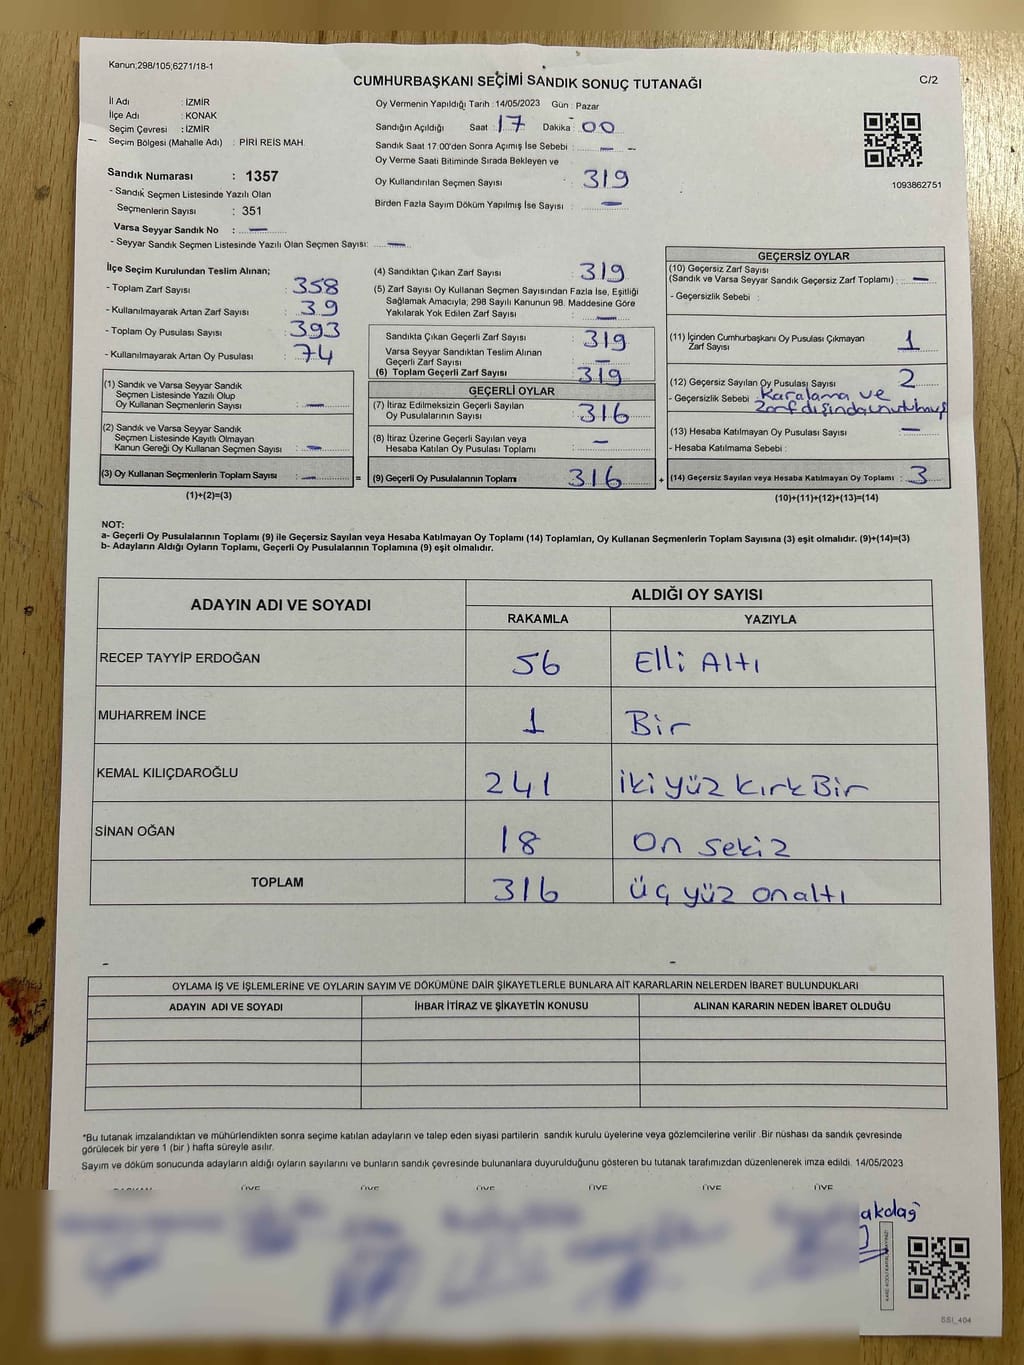 Kanun,298/105,6271/18-1
CUMHURBAŞKANI SEÇİMİ SANDIK SONUÇ TUTANAĞI
C/2
İl Adı : İZMİR
İlçe Adı : KONAK
Seçim Çevresi : İZMİR
Seçim Bölgesi (Mahalle Adı) : PİRİ REİS MAH.
Sandık Numarası : 1357
- Sandık Seçmen Listesinde Yazılı Olan
Seçmenlerin Sayısı : 351
Varsa Seyyar Sandık No : —
- Seyyar Sandık Seçmen Listesinde Yazılı Olan Seçmen Sayısı: —
Oy Vermenin Yapıldığı Tarih : 14/05/2023 Gün : Pazar
Sandığın Açıldığı Saat : 17 Dakika : 00
Sandık Saat 17:00'den Sonra Açımış İse Sebebi : — –
Oy Verme Saati Bitiminde Sırada Bekleyen ve
Oy Kullandırılan Seçmen Sayısı : 319
Birden Fazla Sayım Döküm Yapılmış İse Sayısı : —
1093862751
İlçe Seçim Kurulundan Teslim Alınan;
- Toplam Zarf Sayısı : 358
- Kullanılmayarak Artan Zarf Sayısı : 39
- Toplam Oy Pusulası Sayısı : 393
- Kullanılmayarak Artan Oy Pusulası : 74
(1) Sandık ve Varsa Seyyar Sandık
Seçmen Listesinde Yazılı Olup
Oy Kullanan Seçmenlerin Sayısı : —
(2) Sandık ve Varsa Seyyar Sandık
Seçmen Listesinde Kayıtlı Olmayan
Kanun Gereği Oy Kullanan Seçmen Sayısı : —
(3) Oy Kullanan Seçmenlerin Toplam Sayısı : — =
(1)+(2)=(3)
(4) Sandıktan Çıkan Zarf Sayısı : 319
(5) Zarf Sayısı Oy Kullanan Seçmen Sayısından Fazla İse, Eşitliği
Sağlamak Amacıyla, 298 Sayılı Kanunun 98. Maddesine Göre
Yakılarak Yok Edilen Zarf Sayısı : —
Sandıkta Çıkan Geçerli Zarf Sayısı : 319
Varsa Seyyar Sandıktan Teslim Alınan
Geçerli Zarf Sayısı : —
(6) Toplam Geçerli Zarf Sayısı : 319
GEÇERLİ OYLAR
(7) İtiraz Edilmeksizin Geçerli Sayılan
Oy Pusulalarının Sayısı : 316
(8) İtiraz Üzerine Geçerli Sayılan veya
Hesaba Katılan Oy Pusulası Toplamı : —
(9) Geçerli Oy Pusulalarının Toplamı : 316 +
GEÇERSİZ OYLAR
(10) Geçersiz Zarf Sayısı
(Sandık ve Varsa Seyyar Sandık Geçersiz Zarf Toplamı) : —
- Geçersizlik Sebebi :
(11) İçinden Cumhurbaşkanı Oy Pusulası Çıkmayan
Zarf Sayısı : 1
(12) Geçersiz Sayılan Oy Pusulası Sayısı : 2
- Geçersizlik Sebebi : Karalama ve
Zarf dışında unutulmuş
(13) Hesaba Katılmayan Oy Pusulası Sayısı : —
- Hesaba Katılmama Sebebi :
(14) Geçersiz Sayılan veya Hesaba Katılmayan Oy Toplamı : 3
(10)+(11)+(12)+(13)=(14)
NOT:
a- Geçerli Oy Pusulalarının Toplamı (9) ile Geçersiz Sayılan veya Hesaba Katılmayan Oy Toplamı (14) Toplamları, Oy Kullanan Seçmenlerin Toplam Sayısına (3) eşit olmalıdır. (9)+(14)=(3)
b- Adayların Aldığı Oyların Toplamı, Geçerli Oy Pusulalarının Toplamına (9) eşit olmalıdır.
ADAYIN ADI VE SOYADI
ALDIĞI OY SAYISI
RAKAMLA YAZIYLA
RECEP TAYYİP ERDOĞAN 56 Elli Altı
MUHARREM İNCE 1 Bir
KEMAL KILIÇDAROĞLU 241 iki yüz kırk Bir
SİNAN OĞAN 18 on sekiz
TOPLAM 316 üç yüz onaltı
OYLAMA İŞ VE İŞLEMLERİNE VE OYLARIN SAYIM VE DÖKÜMÜNE DAİR ŞİKAYETLERLE BUNLARA AİT KARARLARIN NELERDEN İBARET BULUNDUKLARI
ADAYIN ADI VE SOYADI İHBAR İTİRAZ VE ŞİKAYETİN KONUSU ALINAN KARARIN NEDEN İBARET OLDUĞU
*Bu tutanak imzalandıktan ve mühürlendikten sonra seçime katılan adayların ve talep eden siyasi partilerin sandık kurulu üyelerine veya gözlemcilerine verilir .Bir nüshası da sandık çevresinde
görülecek bir yere 1 (bir ) hafta süreyle asılır.
Sayım ve döküm sonucunda adayların aldığı oyların sayılarını ve bunların sandık çevresinde bulunanlara duyurulduğunu gösteren bu tutanak tarafımızdan düzenlenerek imza edildi. 14/05/2023
BAŞKAN ÜYE ÜYE ÜYE ÜYE ÜYE ÜYE
akdağ
SSI_404